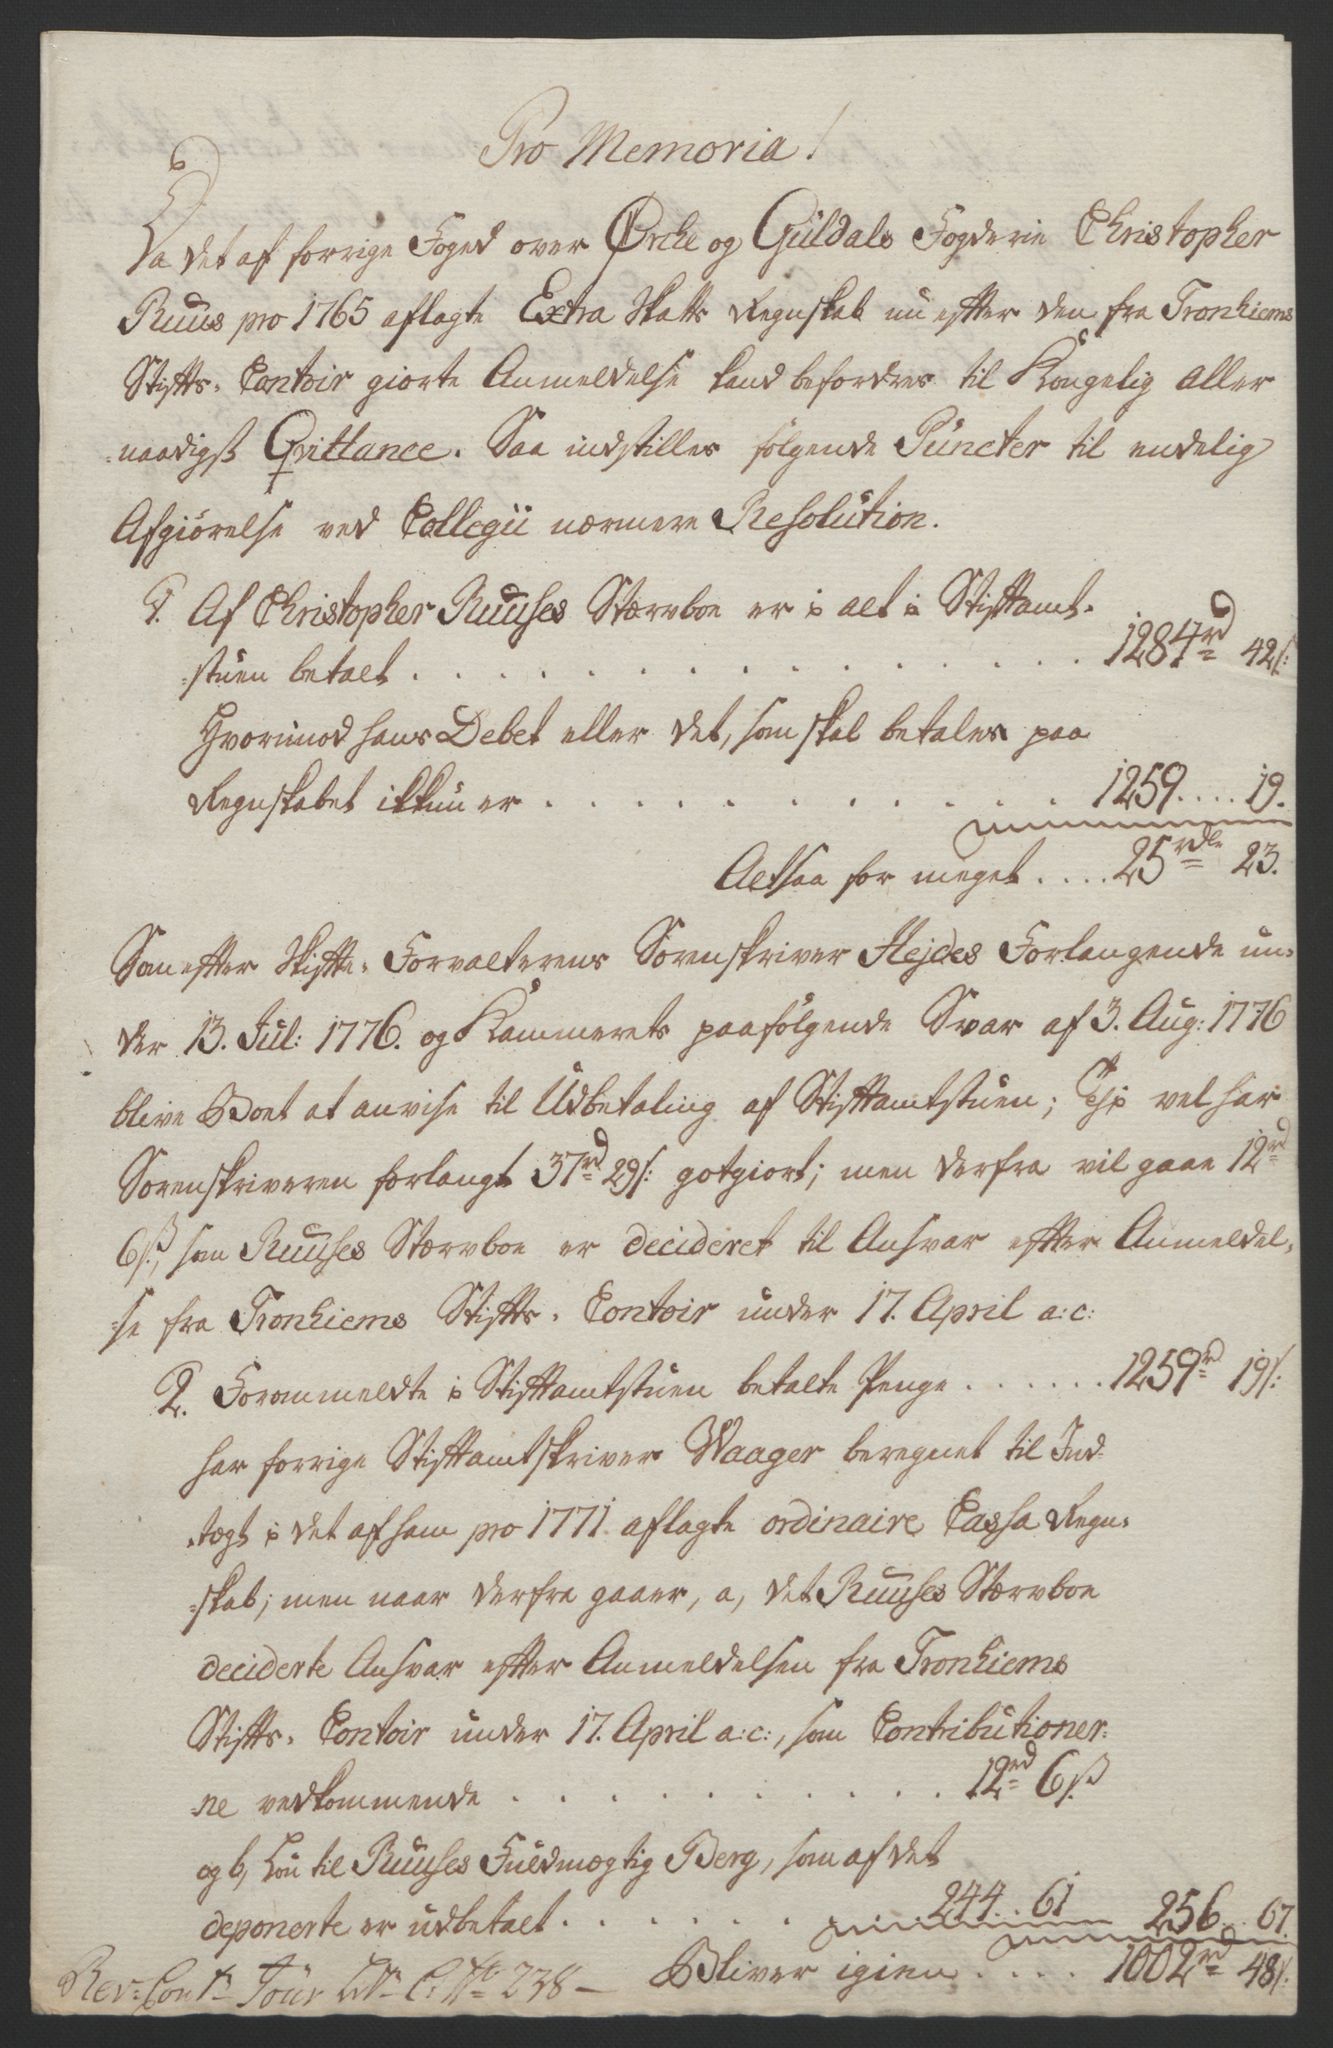 Pro Memoria!
Da det af forrige Foged over Ørche og Güldals Fogderie Christopher
Ruus pro 1765 aflagte Extra Skatts Regnskab nu efter den fra Tronhiems
Stifts-Contoir giorte Anmeldelse kand befordres til Kongelig Aller
naadigst Qvittance. Saa indstilles følgende Puncter til endelig
Afgiørelse ved Collegii nærmere Resolution.
1. Af Christopher Ruuses Stærvboe er i alt i Stiftamt-
stuen betalt . . . . . 1284rd 42s:
Hvorimod hans Debet eller det, som skal betales paa
Regnskabet ikkun er . . . . . 1259 . . . . 19.
Altsaa for meget . . . . 25rdl 23.
Som efter Skifte-Forvalterens Sorenskriver Hejdes Forlangende un-
der 13. Jul: 1776. og Kammerets paafølgende Svar af 3. Aug: 1776
blive Boet at anvise til Udbetaling af Stiftamtstuen; Thi vel har
Sorenskriveren forlangt 37rd 29s: gotgiort; men derfra vil gaae 12rd
6s, som Ruuses Stærvboe er decideret til Ansvar efter Anmeldel-
se fra Tronhiems Stifts-Contoir under 17. April a:c:
2. Forommeldte i Stiftamtstuen betalte Penge . . . . . . 1259rd 19s:
har forrige Stiftamtskriver Waager beregnet til Ind-
tægt i det af ham pro 1771 aflagte ordinaire Cassa Regn-
skab; men naar derfra gaaer, a, det Ruuses Stærvboe
deciderte Ansvar efter Anmeldelsen fra Tronhiems
Stifts-Contoir under 17. April a:c:, som Contributioner-
ne vedkommende . . . . . 12rd 6s
og b, Løn til Ruuses Fuldmægtig Berg, som af det
deponerte er udbetalt . . . . . 244 . . 61 256 . . 67.
Bliver igien . . . . 1002rd 48s:
Rev: Cont: Jour No 238 —